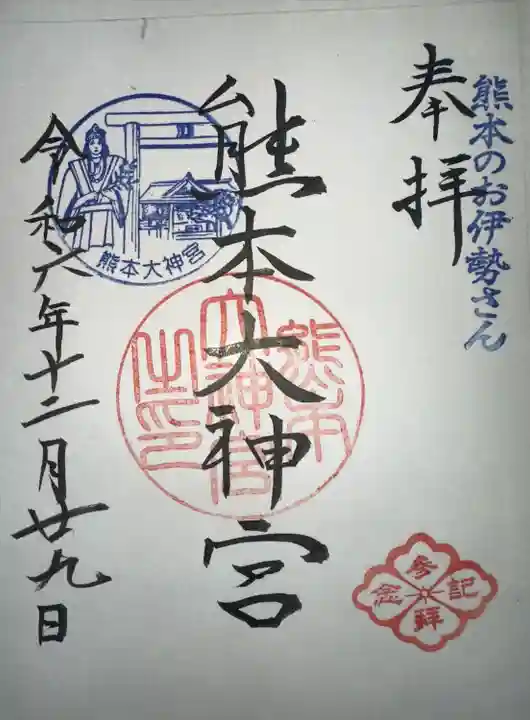 熊本のお伊勢さん
奉拝
熊本大神宮
熊本大神宮之印
熊本大神宮
令和六年十二月廿九日
参拝記念